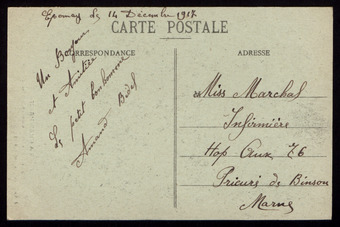 Epernay le 14 Décembre 1917
CARTE POSTALE
CORRESPONDANCE
ADRESSE
Un Bonjour
et Amitiés
Le petit bonhomme
Armand
Miss Marchal
Infirmière
Hop Aux 76
Prieuré de Binson
Marne